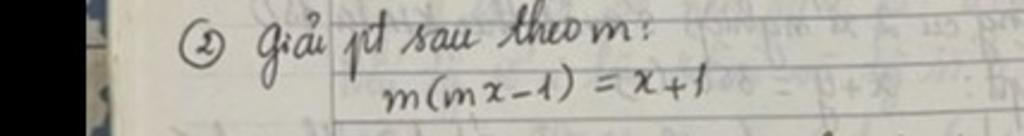 ② giải pt sau theo m:
m(mx-1) = x+1